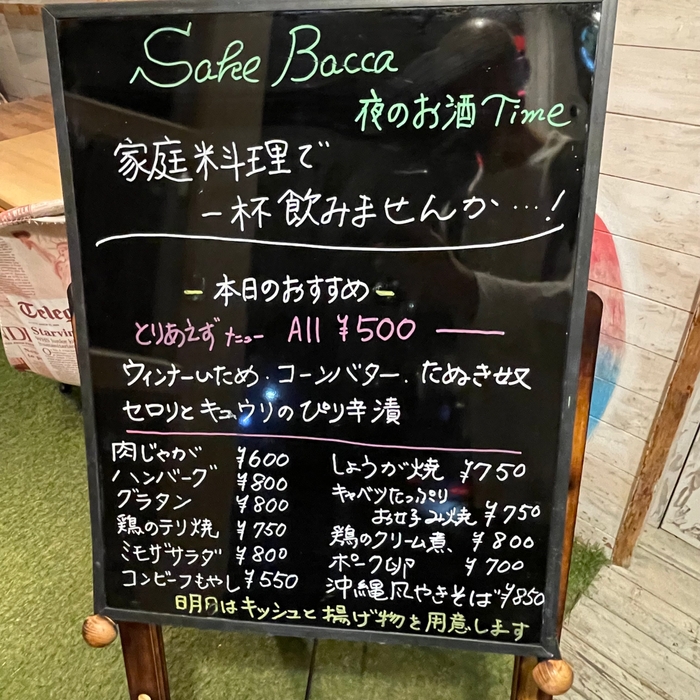 Sake Bacca
夜のお酒 Time
家庭料理で
一杯飲みませんか…!
本日のおすすめ
とりあえずたニュー All ¥500
ウィンナーいため・コーンバター・たぬき奴
セロリとキュウリのぴり辛漬
肉じゃが ¥600
ハンバーグ ¥800
グラタン ¥800
鶏のテリ焼 ¥750
ミモザサラダ ¥800
コンビーフもやし ¥550
しょうが焼 ¥750
キャベツたっぷり
お好み焼 ¥750
鶏のクリーム煮 ¥800
ポーク卵 ¥700
沖縄風やきそば ¥850
明日はキッシュと揚げ物を用意します
Teleg
Starvin